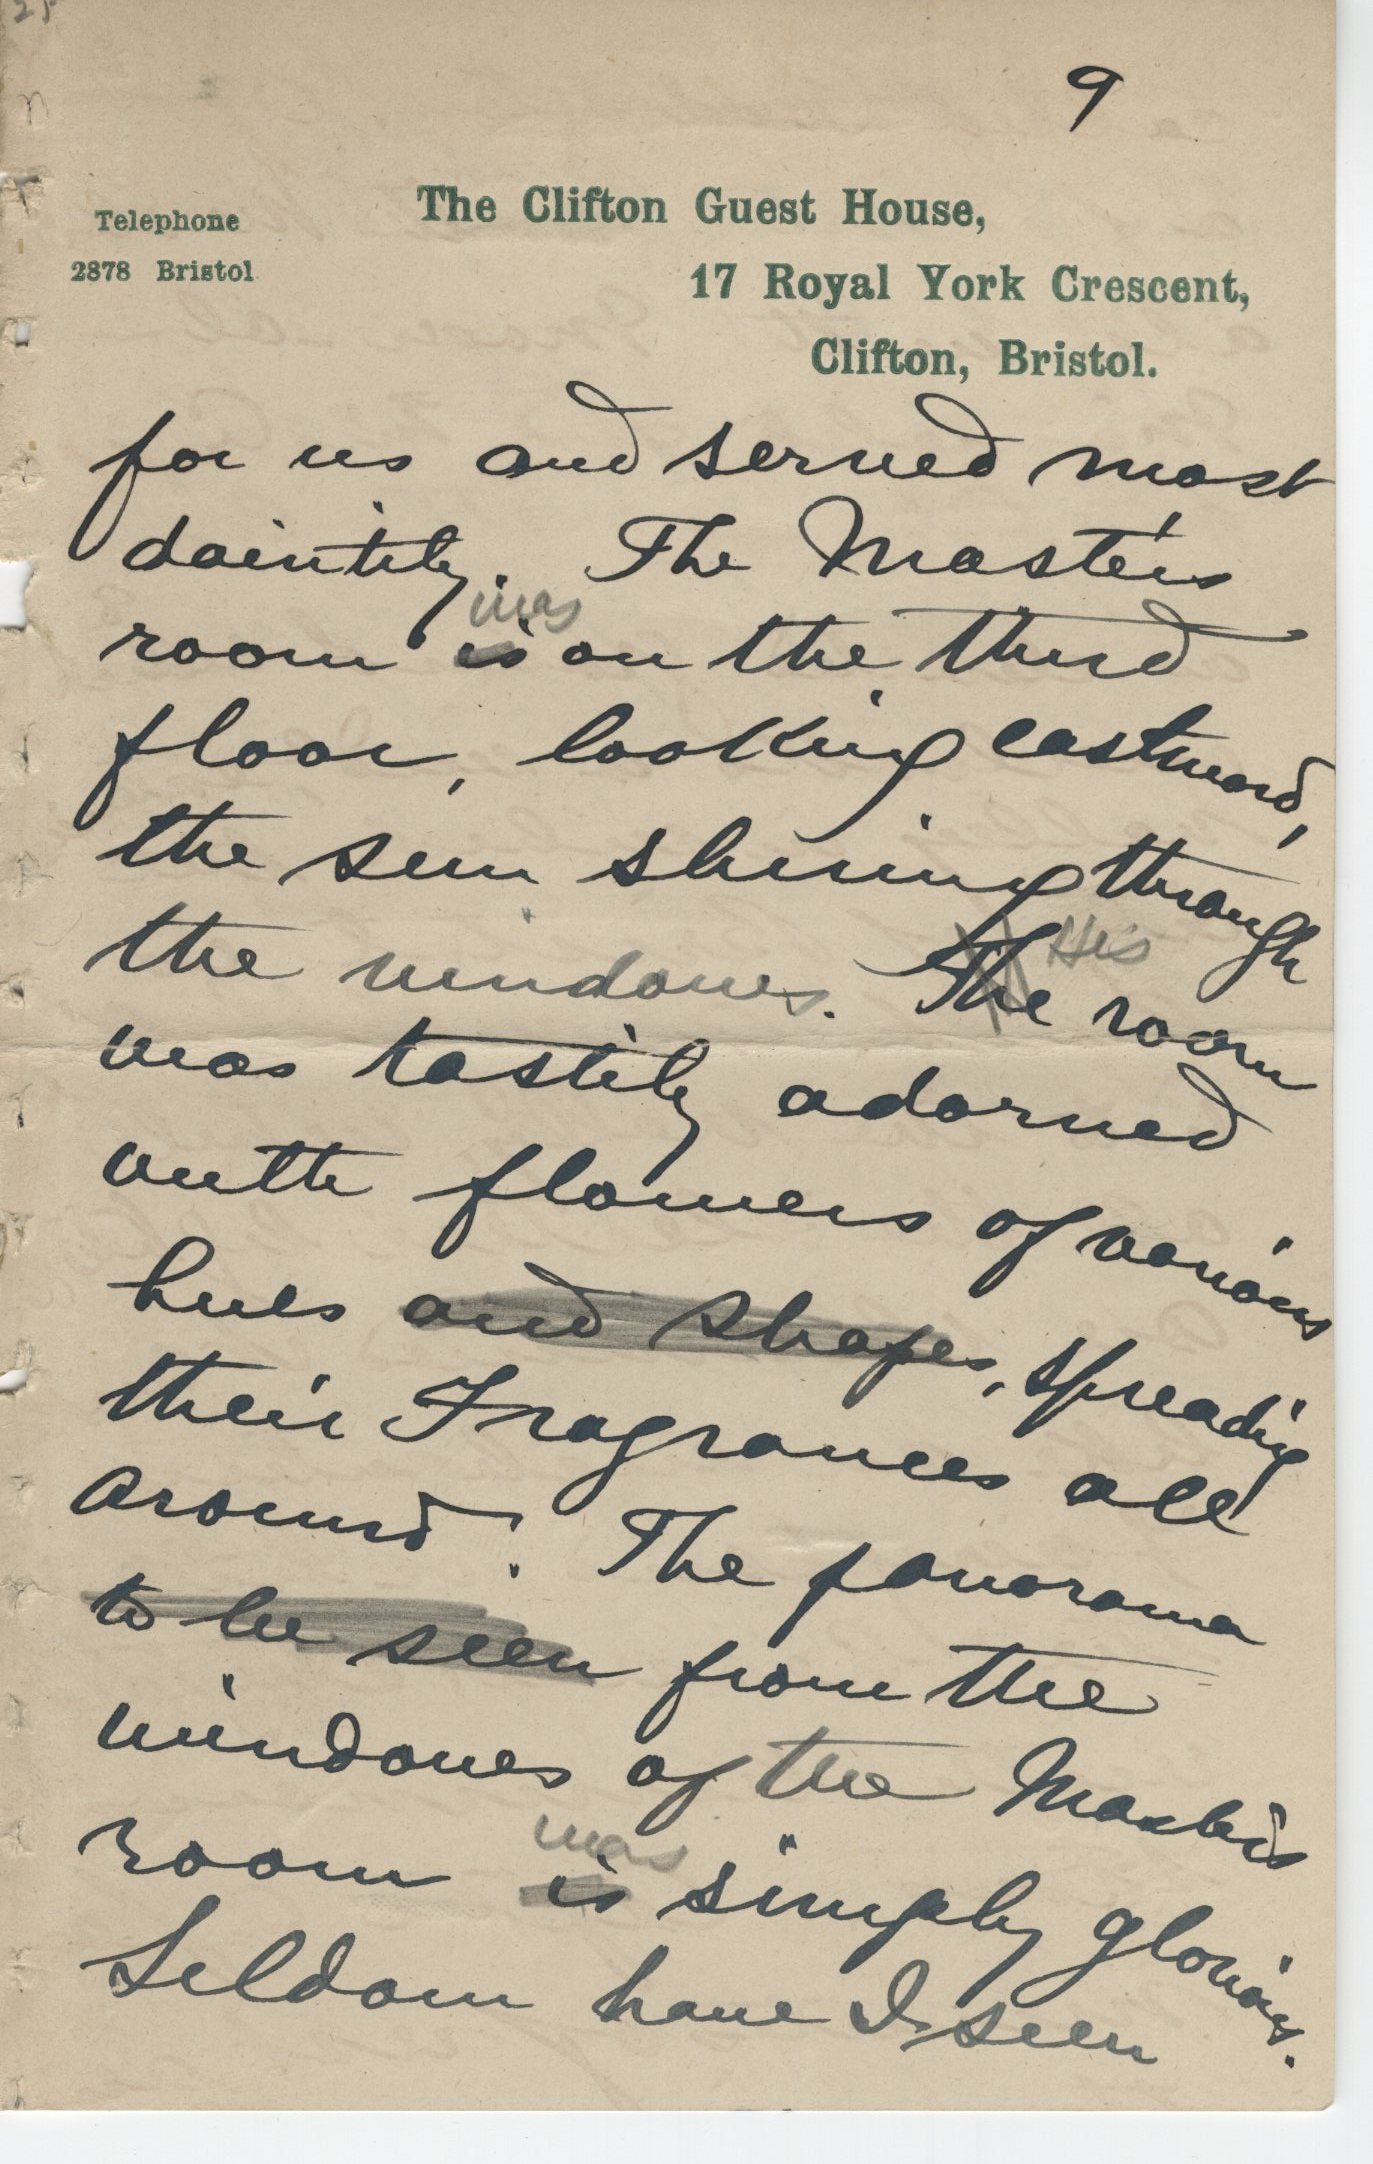 9
Telephone
2878 Bristol
The Clifton Guest House,
17 Royal York Crescent,
Clifton, Bristol.
for us and served most
daintily. The Master's
was
room is on the third
floor, looking eastward,
the sun shining through
the windows. The His room
was tastily adorned
with flowers of various
hues and shapes, spreading
their Fragrances all
around! The panorama
to be seen from the
windows of the Master's
was
room is simply glorious.
Seldom have I seen